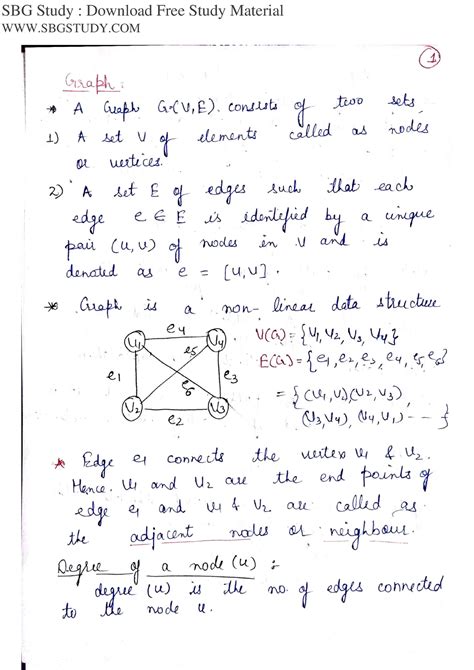 SBG Study : Download Free Study Material
WWW.SBGSTUDY.COM
1
Graph :
* A Graph G=(V,E). consists of two sets
1) A set V of elements called as nodes
or vertices.
2) A set E of edges such that each
edge e ∈ E is identefied by a unique
pair (u,v) of nodes in V and is
denoted as e = [u,v].
* Graph is a non-linear data structure
e4
V1
V4
V(G)={V1,V2,V3,V4}
e5
E(G)={e1,e2,e3,e4,e5,e6}
e1
e6
e3
={(V1,V2)(V2,V3)
V2
V3
(V3,V4) (V4,V1) ----}
e2
* Edge e1 connects the vertex V1 & V2.
Hence V1 and V2 are the end points of
edge e1 and V1 & V2 are called as
the adjacent nodes or neighbour.
Degree of a node (u) :-
degree (u) is the no. of edges connected
to the node u.